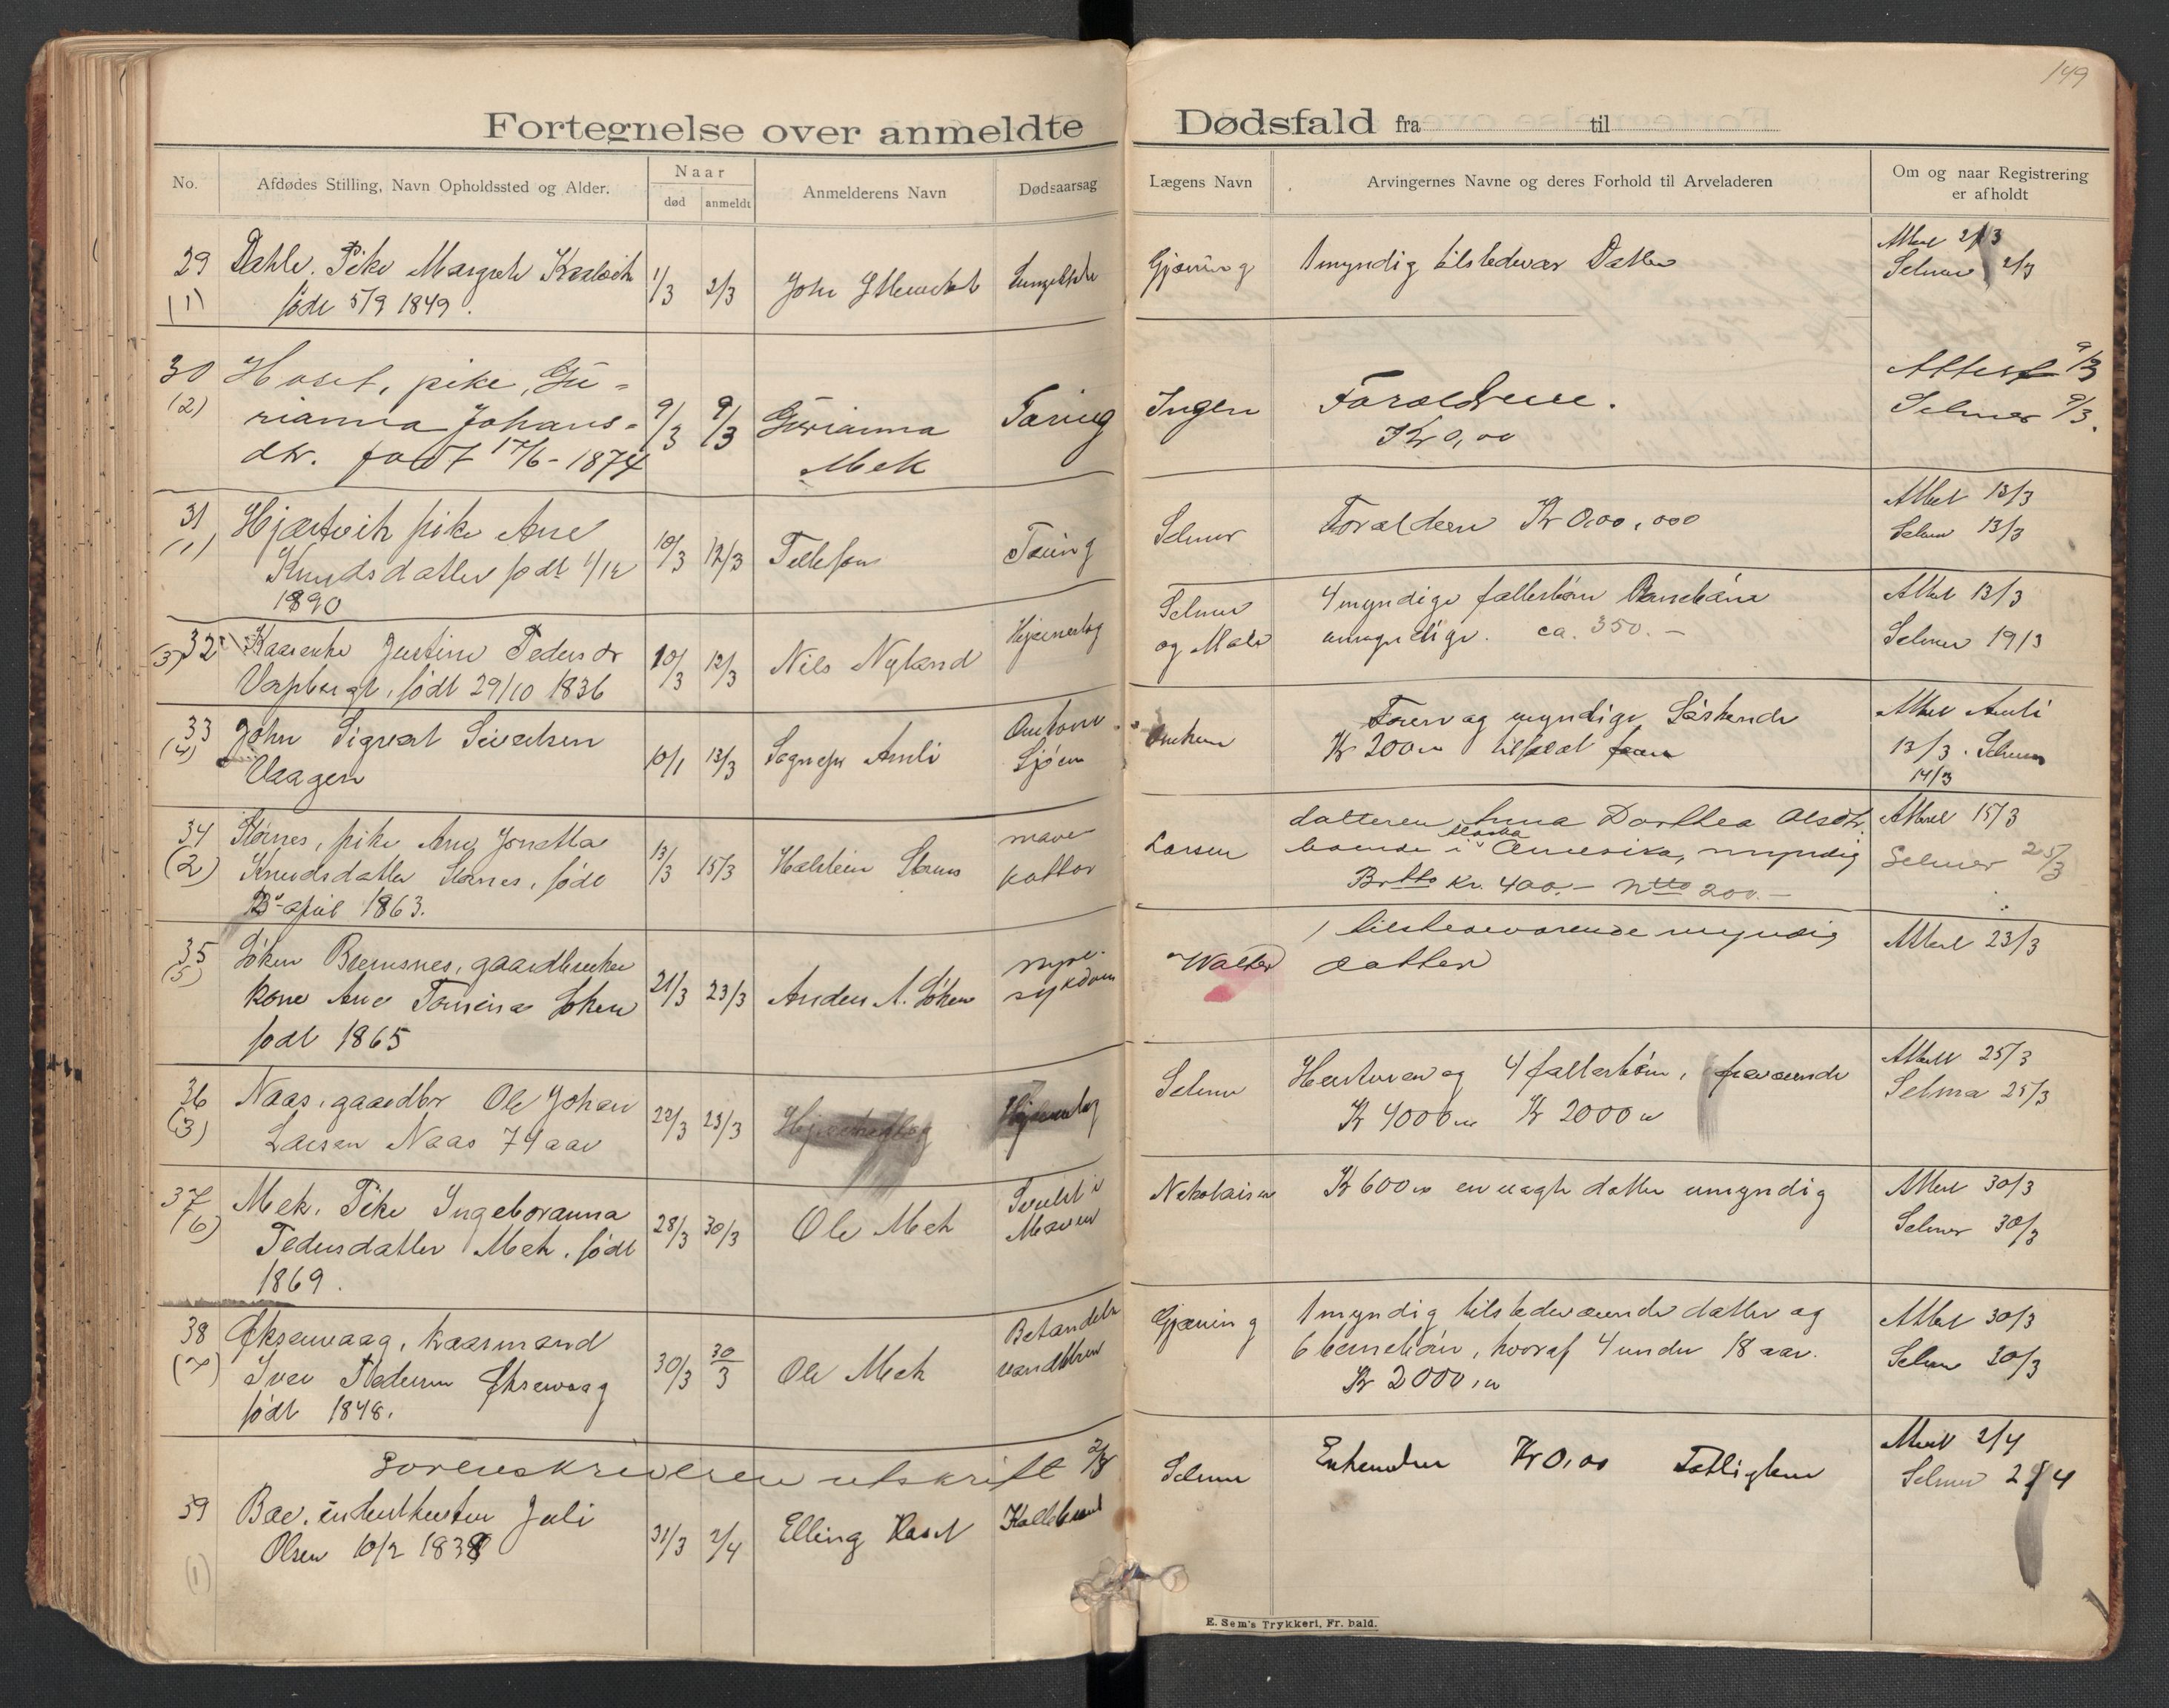 149
Fortegnelse over anmeldte Dødsfald fra til
No.
Afdødes Stilling, Navn Opholdssted og Alder.
Naar
død
anmeldt
Anmelderens Navn
Dødsaarsag
Lægens Navn
Arvingernes Navne og deres Forhold til Arveladeren
Om og naar Registrering
er afholdt
29
(1)
Dahle. Pike Margrete
født 5/9 1849.
1/3
2/3
John
Gjæring
1 myndig tilstedevær Datter
Attest 2/3
Selmer 2/3
30
(2)
Hoset, pike, Gu-
rianna Johans-
dtr. født 17/6-1874
9/3
9/3
Gurianna
Mek
Tæring
Ingen
Forældrene.
Kr 0,00
Attest 9/3
Selmer 9/3.
31
(1)
Hjertvik pike Ane
Knudsdatter født 1/12
1890
10/3
12/3
Tellefsen
Tæring
Selmer
Forældrene Kr 0,00,000
Attest 13/3
Selmer 13/3
32
(3)
Kaarenke Justine Pedersdr
født 29/10 1836
10/3
12/3
Nils Nyland
Hjerneslag
Selmer
og
4 myndige fællesbørn Barnebørn
umyndige. ca. 350.-
Attest 13/3
Selmer 19/3
33
(4)
John Sigvart Sivertsen
Vaagen
10/1
13/3
Sognepr Amli
Omkom
Sjøen
Omkom
Faren og myndige Søskende
Kr 200,00 tilfaldt faren
Attest Amli
13/3. Selmer
14/3
34
(2)
Stornes, pike Ane Jonetta
Knudsdatter Stornes, født
april 1863.
13/3
15/3
Halstein Stornes
mave-
kattar
Larsen
datteren Anna Dorthea Olsdtr.
boende i Alaska Amerika, myndig
Brtto Kr. 400.- Ntto 200.-
Attest 15/3
Selmer 25/3
35
(5)
Løken Bremsnes, gaardbruker
kone Ane Tomina Løken
født 1865
21/3
23/3
Anders A. Løken
nyre-
sykdom
Walter
1 tilstedeværende myndig
datter
Attest 23/3
36
(3)
Naas, gaardbr Ole Johan
Larsen Naas 74 aar
22/3
25/3
Hjerneslag
Hjerneslag
Selmer
Hustruen og 4 fællesbørn, fraværende
Kr 4000,00 Kr 2000,00
Attest 25/3
Selmer 25/3
37
(6)
Mek. Pike Ingeboranna
Pedersdatter Mek. født
1869.
28/3
30/3
Ole Mek
Svulst i
Maven
Nikolaisen
Kr 600,00 en uægte datter umyndig
Attest 30/3
Selmer 30/3
38
(7)
Øksenvaag, kaarmand
Iver Pedersen Øksenvaag
født 1848.
30/3
30/3
Ole Mek
Gjæring
1 myndig tilstedeværende datter og
6 barnebørn, hvoraf 4 under 18 aar.
Kr 2000,00
Attest 30/3
Selmer 30/3
Sorenskriveren utskrift
39
(1)
Olsen 10/2 1838
31/3
2/4
Elling Hoset
Koldbrand
Selmer
Enkemanden Kr 0,00 Fattiglem
Attest 2/4
Selmer 2/4
E. Sem's Trykkeri, Fr.hald.